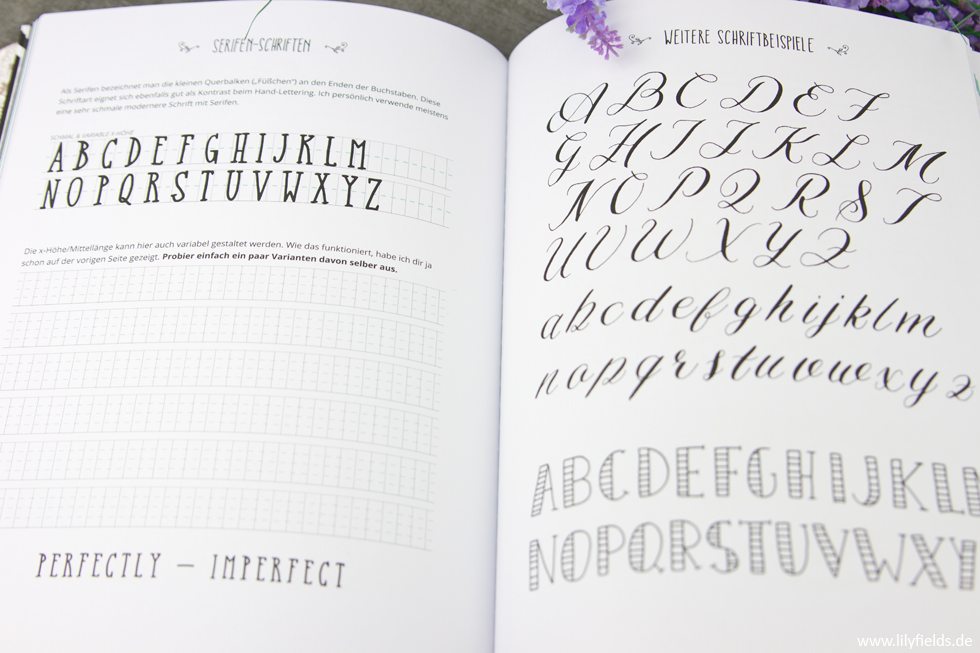 SERIFEN-SCHRIFTEN
Als Serifen bezeichnet man die kleinen Querbalken („Füßchen“) an den Enden der Buchstaben. Diese
Schriftart eignet sich ebenfalls gut als Kontrast beim Hand-Lettering. Ich persönlich verwende meistens
eine sehr schmale modernere Schrift mit Serifen.
SCHMAL & VARIABLE X-HÖHE
ABCDEFGHIJKLM
NOPQRSTUVWXYZ
Die x-Höhe/Mittellänge kann hier auch variabel gestaltet werden. Wie das funktioniert, habe ich dir ja
schon auf der vorigen Seite gezeigt. Probier einfach ein paar Varianten davon selber aus.
PERFECTLY – IMPERFECT
WEITERE SCHRIFTBEISPIELE
A B C D E F
G H I J K L M
N O P Q R S T
U V W X Y Z
a b c d e f g h i j k l m
n o p q r s t u v w x y z
ABCDEFGHIJKL
NOPQRSTUVWXY
www.lilyfields.de